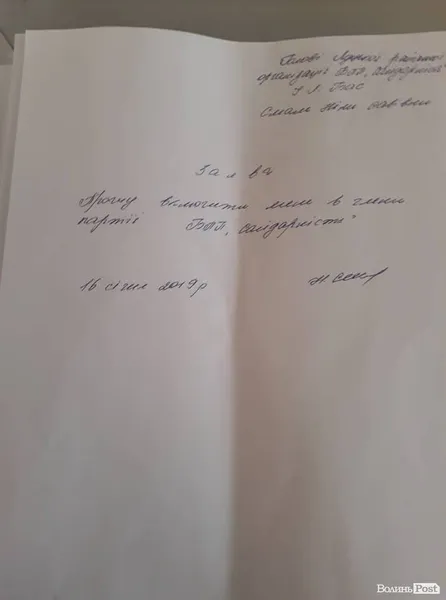 Голові Луцької районної
організації БПП „Солідарність"
І. Л. Бас
Смаль Ніни Саввівни
Заява
Прошу включити мене в члени
партії БПП „Солідарність"
16 січня 2019 р
ВолиньPost